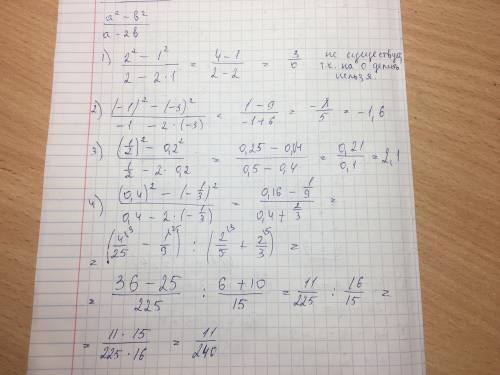 a² - b²
a - 2b
1) 2² - 1² / 2 - 2·1 = 4-1 / 2-2 = 3/0 не существует,
т.к. на 0 делить
нельзя.
2) (-1)² - (-3)² / -1 - 2·(-3) = 1-9 / -1+6 = -8/5 = -1,6
3) (1/2)² - 0,2² / 1/2 - 2·0,2 = 0,25 - 0,04 / 0,5 - 0,4 = 0,21/0,1 = 2,1
4) (0,4)² - (-1/3)² / 0,4 - 2·(-1/3) = 0,16 - 1/9 / 0,4 + 2/3 =
= (4/25 - 1/9) : (2/5 + 2/3) =
= 36-25 / 225 : 6+10 / 15 = 11/225 : 16/15 =
= 11·15 / 225·16 = 11/240